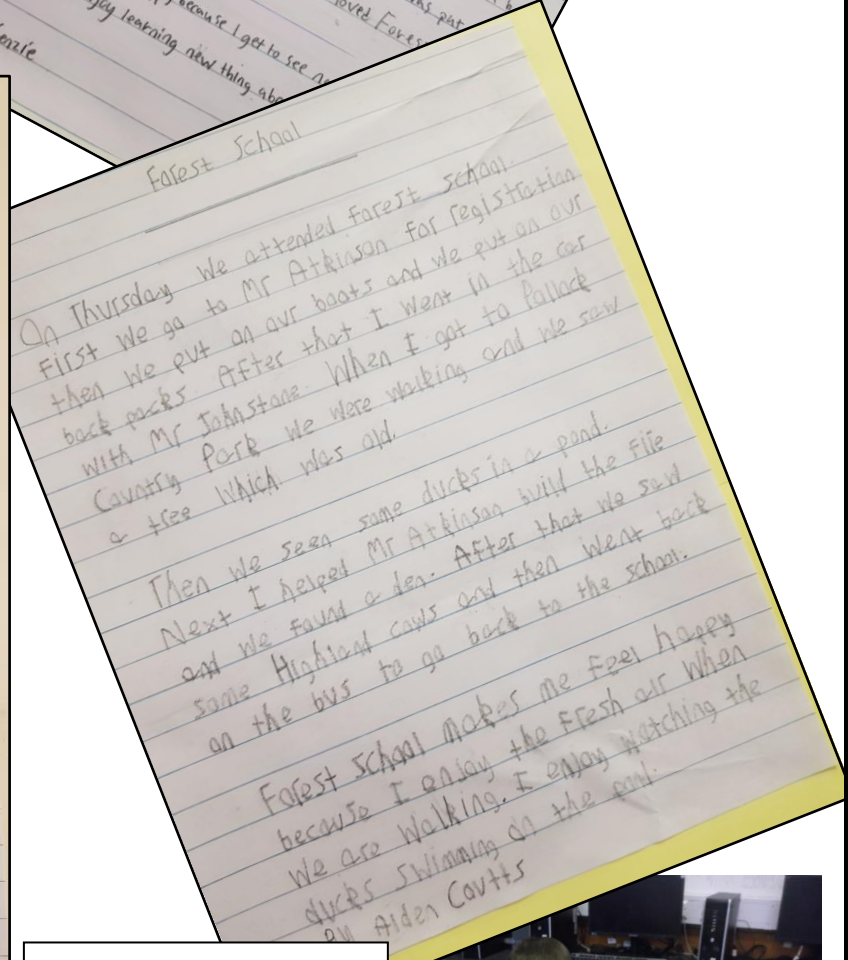 ns put
oved Fores
because I get to see n
joy learning new thing abo
enzie
Forest School
On Thursday we attended forest school.
First we go to Mr Atkinson for registration
then we put on our boots and we put on our
back packs. After that I went in the car
with Mr Johnstone. When I got to Pollock
Country Park we were walking and we saw
a tree which was old.
Then we seen some ducks in a pond.
Next I helped Mr Atkinson build the fire
and we found a den. After that we saw
some Highland cows and then went back
on the bus to go back to the school.
Forest school makes me feel happy
because I enjoy the fresh air when
we are walking. I enjoy watching the
ducks swimming on the pond.
By Aiden Coutts